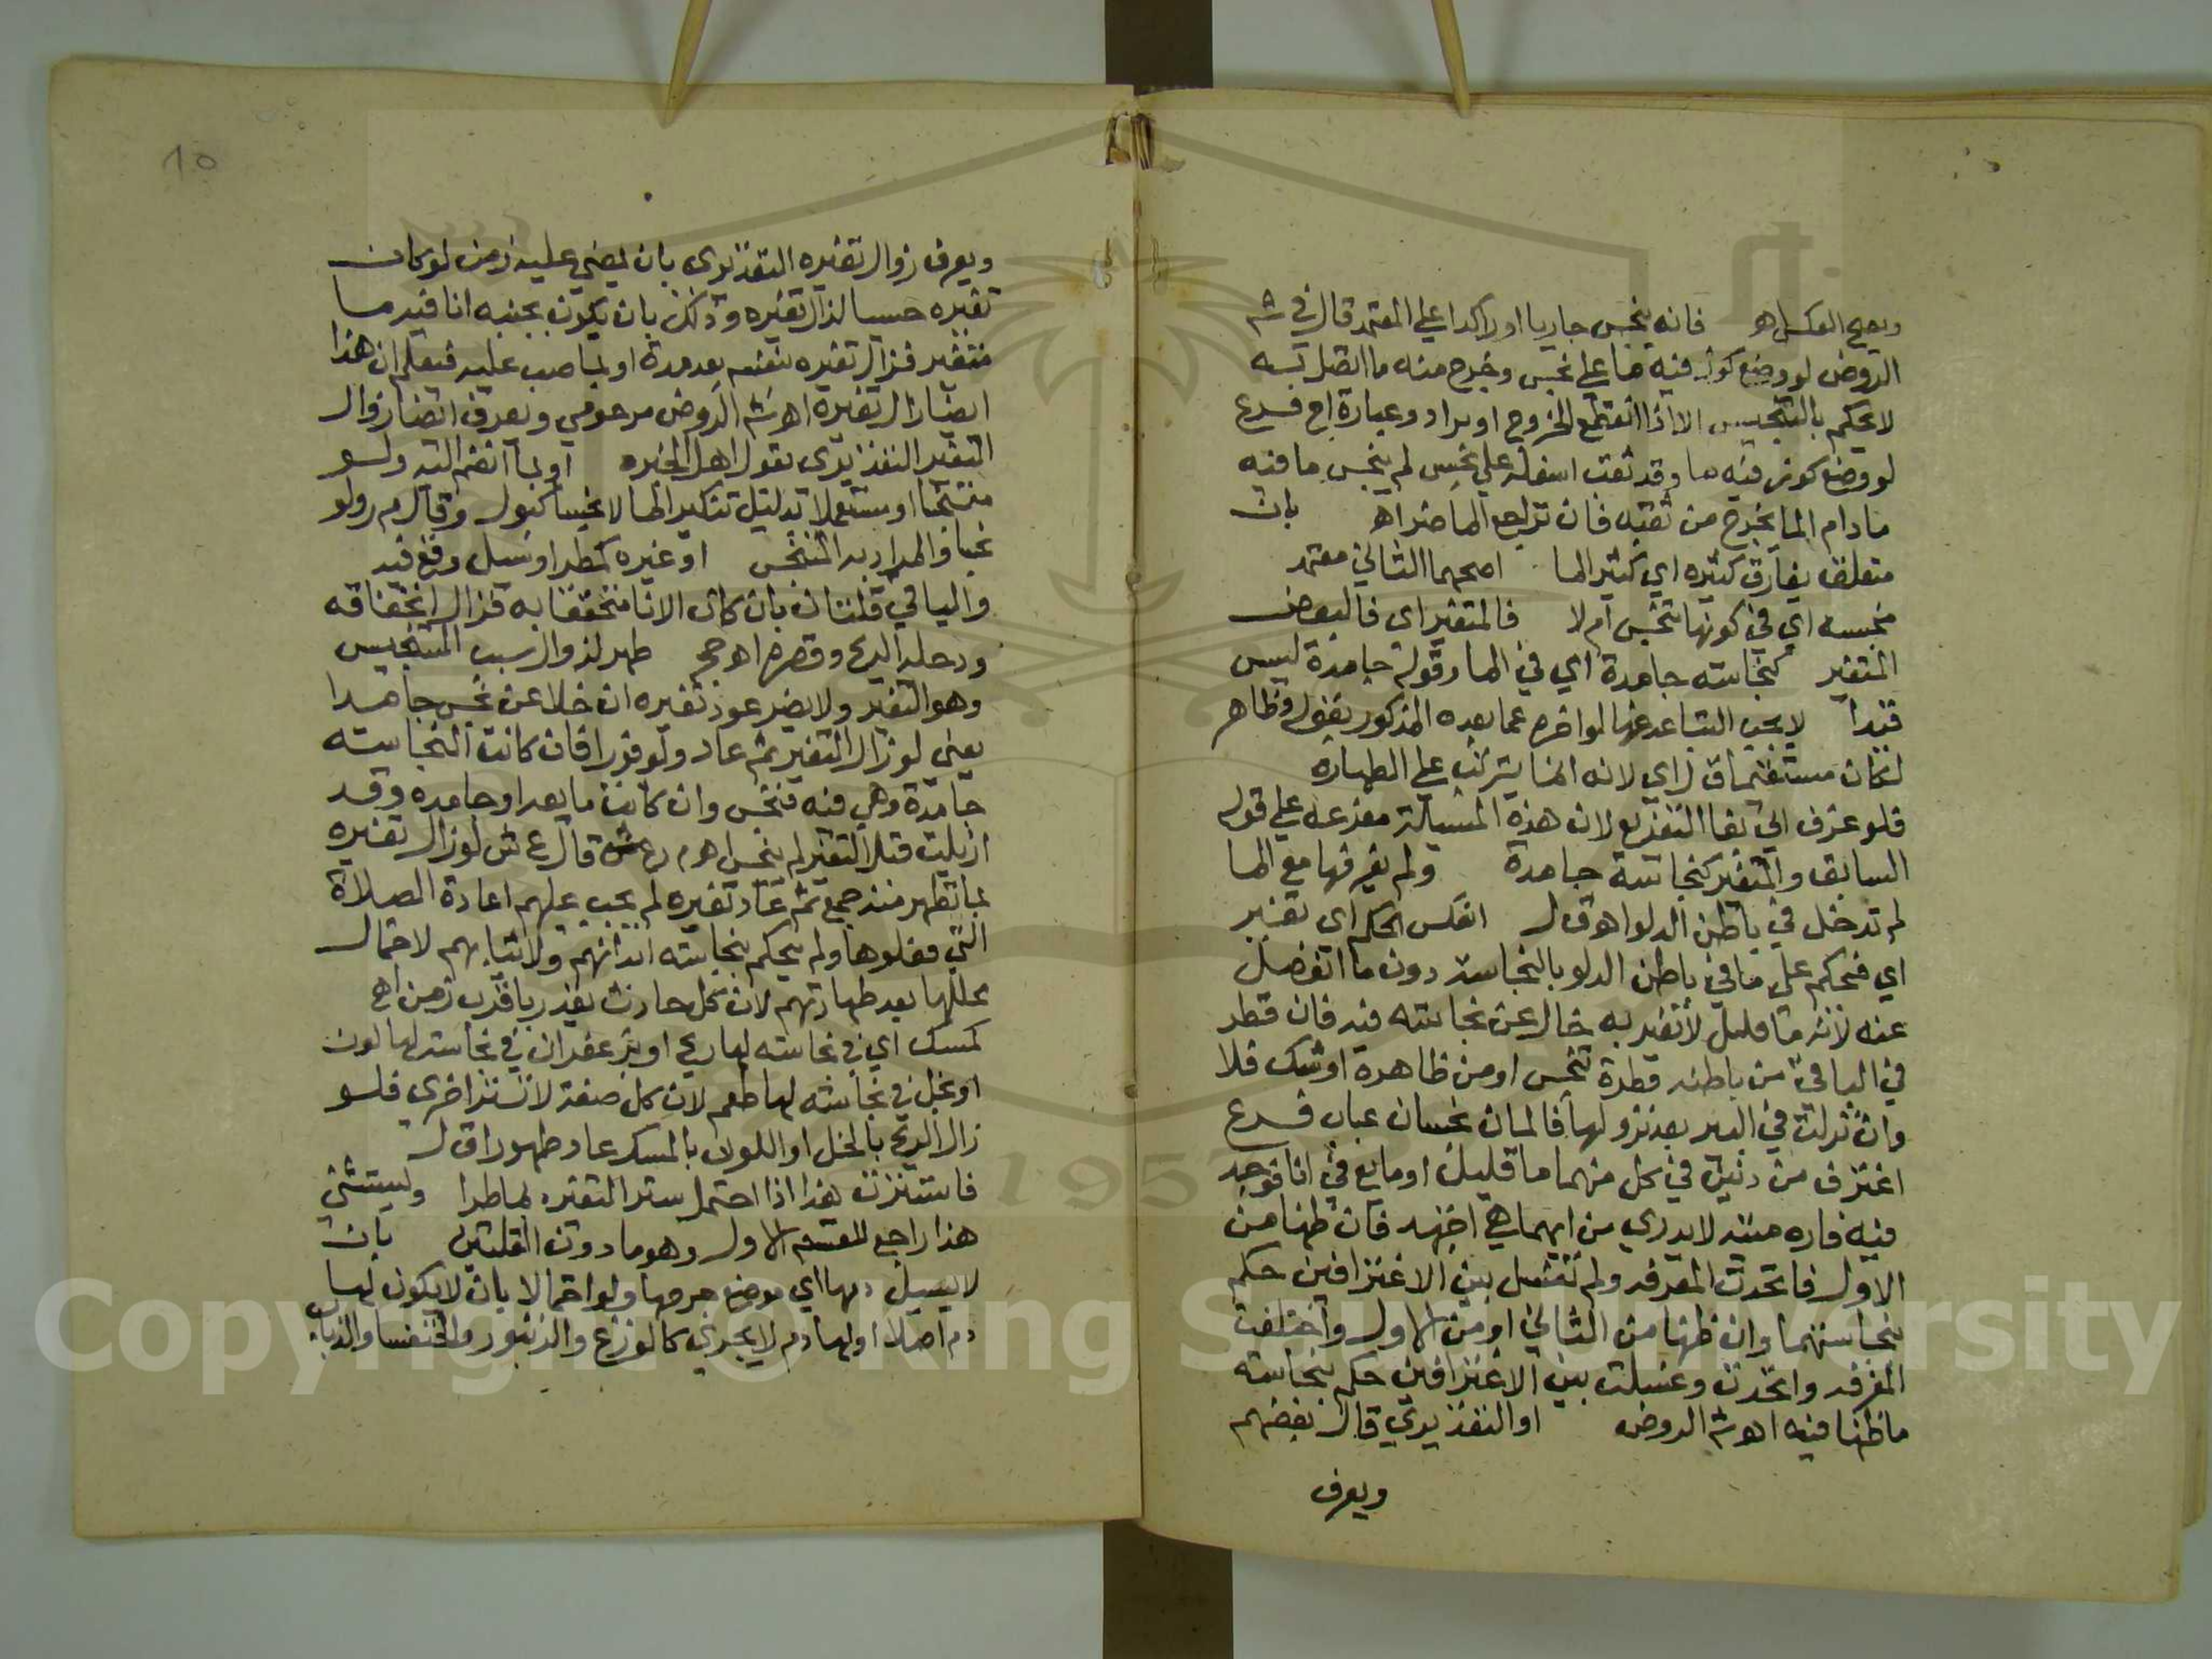 ويصح العكس اهـ فانه ينجس جاريا او راكدا علي المعتمد قال في شـ
الروض لو وضع كوز فيه ما علي نجس وخرج منه ما اتصل به
لا يحكم بالتنجيس الا اذا انقطع الخروج او براد وعبارة اج فرع
لو وضع كوز فيه ما وقد ثقب اسفله علي نجس لم ينجس ما فيه
ما دام الما يخرج من ثقبه فان تراجع الما ضر اهـ بان
متعلق بفارق كثيره اي كثير الما اصحهما الثاني معتمد
نجسه اي في كونها تنجس ام لا فالمتغير اي فالبعض
المتغير كنجاسته جامدة اي في الما وقوله جامدة ليس
قيدا لا يجب التباعد عنها لو اخره عما بعده المذكور بقوله وظاهر
لكان مستقيما ق ل اي لانه انما يترتب علي الطهارة
فلو غرف الي بقا التفريع لان هذه المسيلة مفرعه علي قوله
السابق والمتغير كنجاسة جامدة ولم يغرفها مع الما
لم تدخل في باطن الدلو اهـ ق ل انعكس الحكم اي تغير
اي فيحكم علي ما في باطن الدلو بالنجاسة دون ما انفصل
عنه لانه ما قليل لا تغير به خال عن نجاسته فيه فان قطر
في الباقي من باطنه قطرة تنجس او من ظاهره او شك فلا
وان نزلت في البير بعد نزولها فالمان نجسان عباب فرع
اغترف من دنين في كل منهما ما قليل او مايع في انا فوجد
فيه فاره ميتة لا يدري من ايهما هي اجتهد فان ظنها من
الاول فاتحدت المغرفه ولم تغسل بين الاغترافين حكم
بنجاستهما وان ظنها من الثاني او من الاول واختلفت
المغرفه واتحدت وغسلت بين الاغترافين حكم بنجاسته
ما ظنها فيه اهـ شـ الروض او التقديري قال بعضهم
ويعرف
10
ويعرف زوال تغيره التقديري بان يمضي عليه زمن لو كان
تغيره حسيا لزال تغيره وذلك بان يكون بجنبه انا فيه ما
متغير فزال تغيره بنفسه بعد مدة او بما صب عليه فيعلم ان هذا
ايضا زال تغيره اهـ شـ الروض مرحومي ويعرف ايضا زوال
التغير التقديري بقول اهل الخبره او بما انضم اليه ولو
متنجسا او مستعملا بدليل تنكير الما لا نجسا كبول وقال م ر ولو
نجسا والمراد به المتنجس او غيره كمطر او سيل وقع فيه
والباقي قلتان بان كان الانا منخنقا به فزال انخناقه
ودخله الريح وقصره اهـ حج طهر لزوال سبب التنجيس
وهو التغير ولا يضر عود تغيره ان خلا عن نجس جامد
يعني لو زال التغير ثم عاد ولو فورا فان كانت النجاسة
جامدة وهي فيه فنجس وان كانت مايعة او جامده وقد
ازيلت قبل التغير لم ينجس اهـ م ر ع ش قال ع ش لو زال تغيره
بما تطهر منه جمع ثم عاد تغيره لم يجب عليهم اعادة الصلاة
التي فعلوها ولم يحكم بنجاسة ابدانهم ولا ثيابهم لاحتمال
محللها بعد طهارتهم لان كل حادث يقدر باقرب زمن اهـ
كمسك اي في نجاسته لها ريح او بزعفران في نجاسة لها لون
او بخل في نجاسته لها طعم لان كل صفة لا تستر اخري فلو
زال الريح بالخل او اللون بالمسك عاد طهورا ق ل
فاستترت هذا اذا احتمل ستر التغير بما طرا ويستثني
هذا راجع للقسم الاول وهو ما دون القلتين بان
لا يسيل دمها اي موضع جرحها ولو احتمالا بان لا يكون لها
دم اصلا او لها دم لا يجري كالوزغ والزنبور والخنفسا والذباب